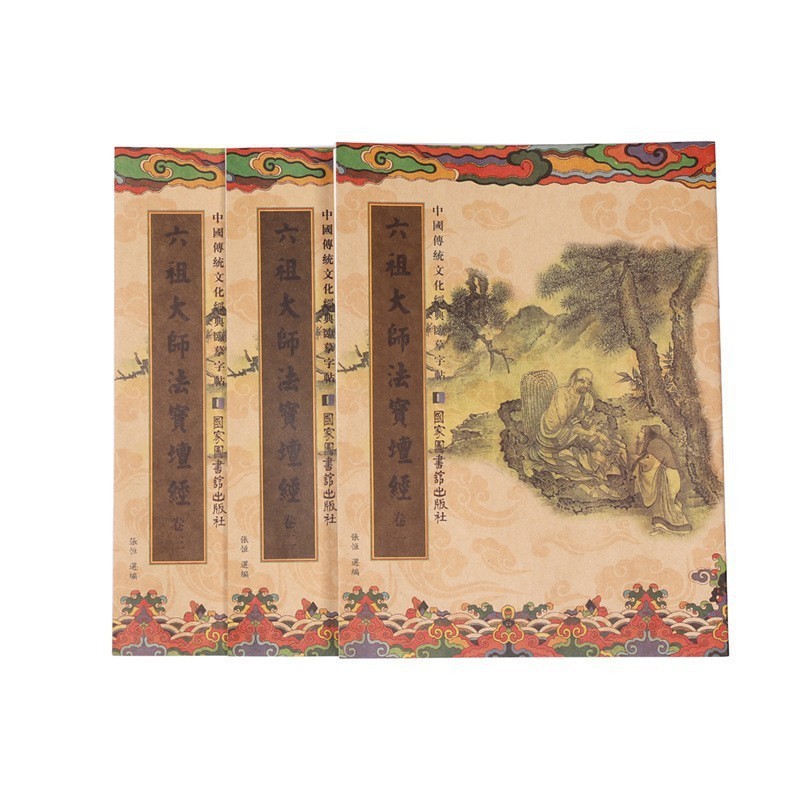 六祖大師法寶壇經 卷三
中國傳統文化經典臨摹字帖 國家圖書館出版社
張恒 選編
六祖大師法寶壇經 卷二
中國傳統文化經典臨摹字帖 國家圖書館出版社
張恒 選編
六祖大師法寶壇經 卷一
中國傳統文化經典臨摹字帖 國家圖書館出版社
張恒 選編